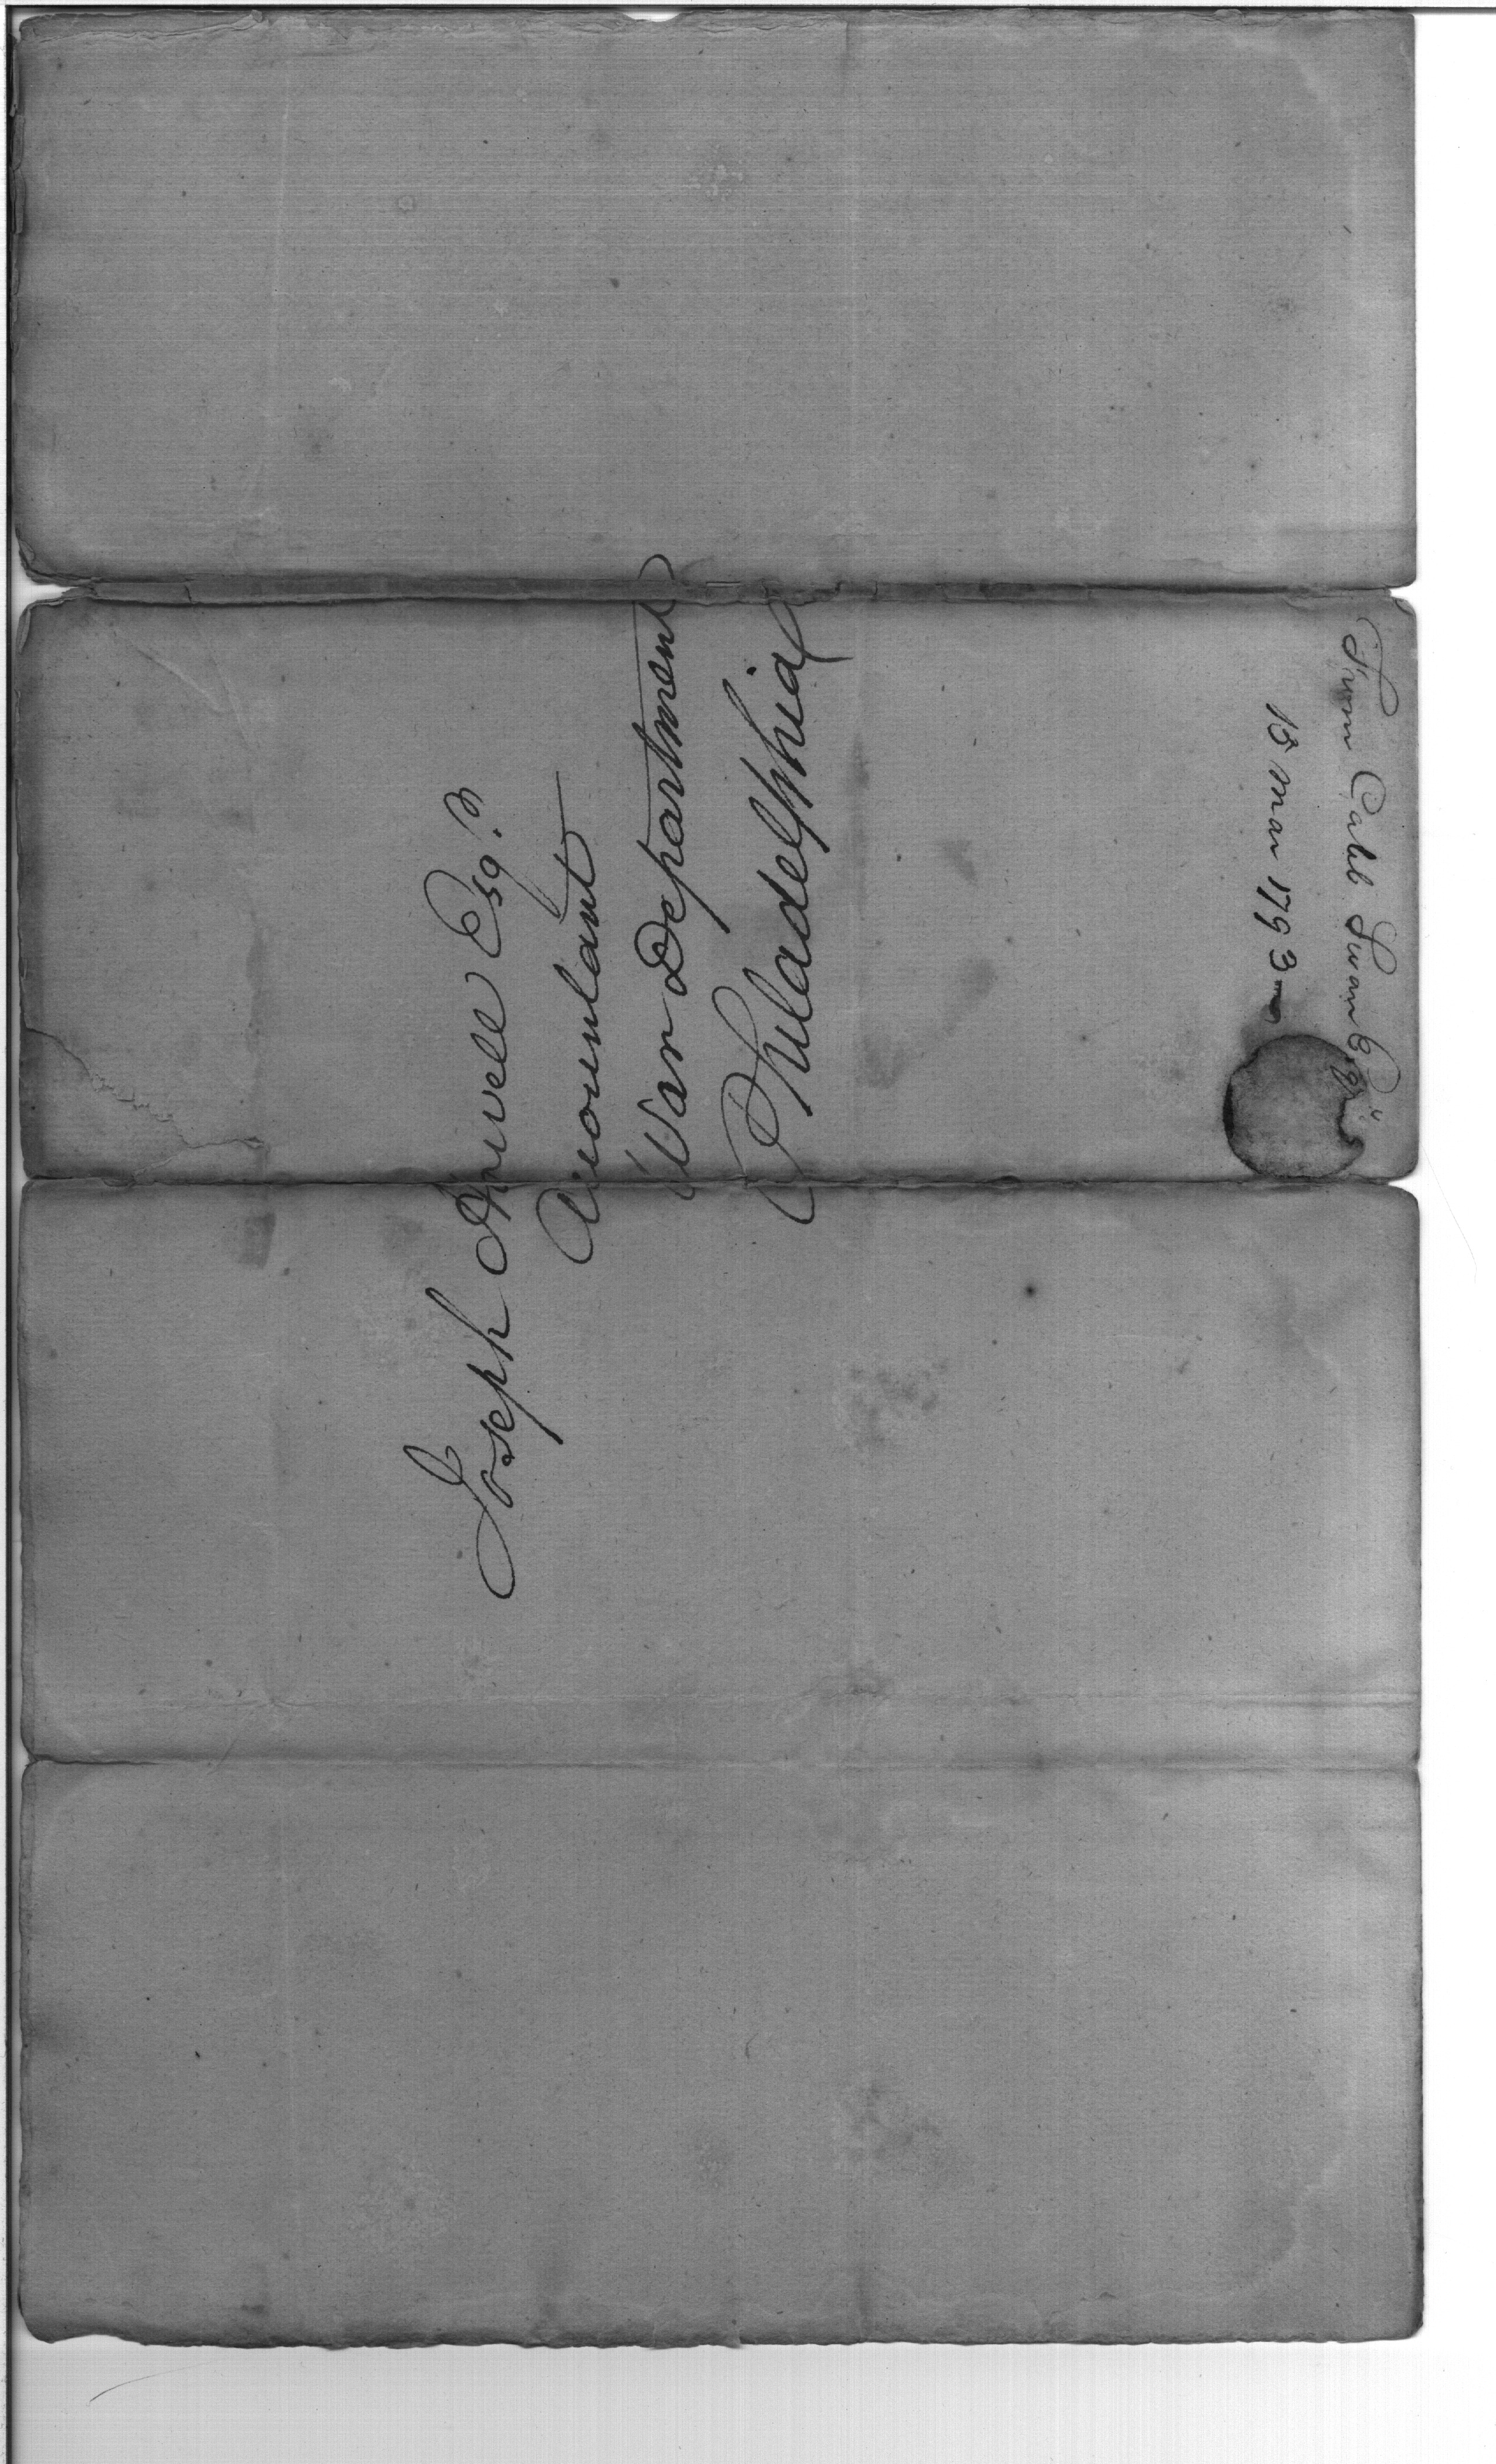 Joseph Howell Esqr.
Accountant
War Department
Philadelphia
From Caleb Swan Esqr
15 Mar 1793